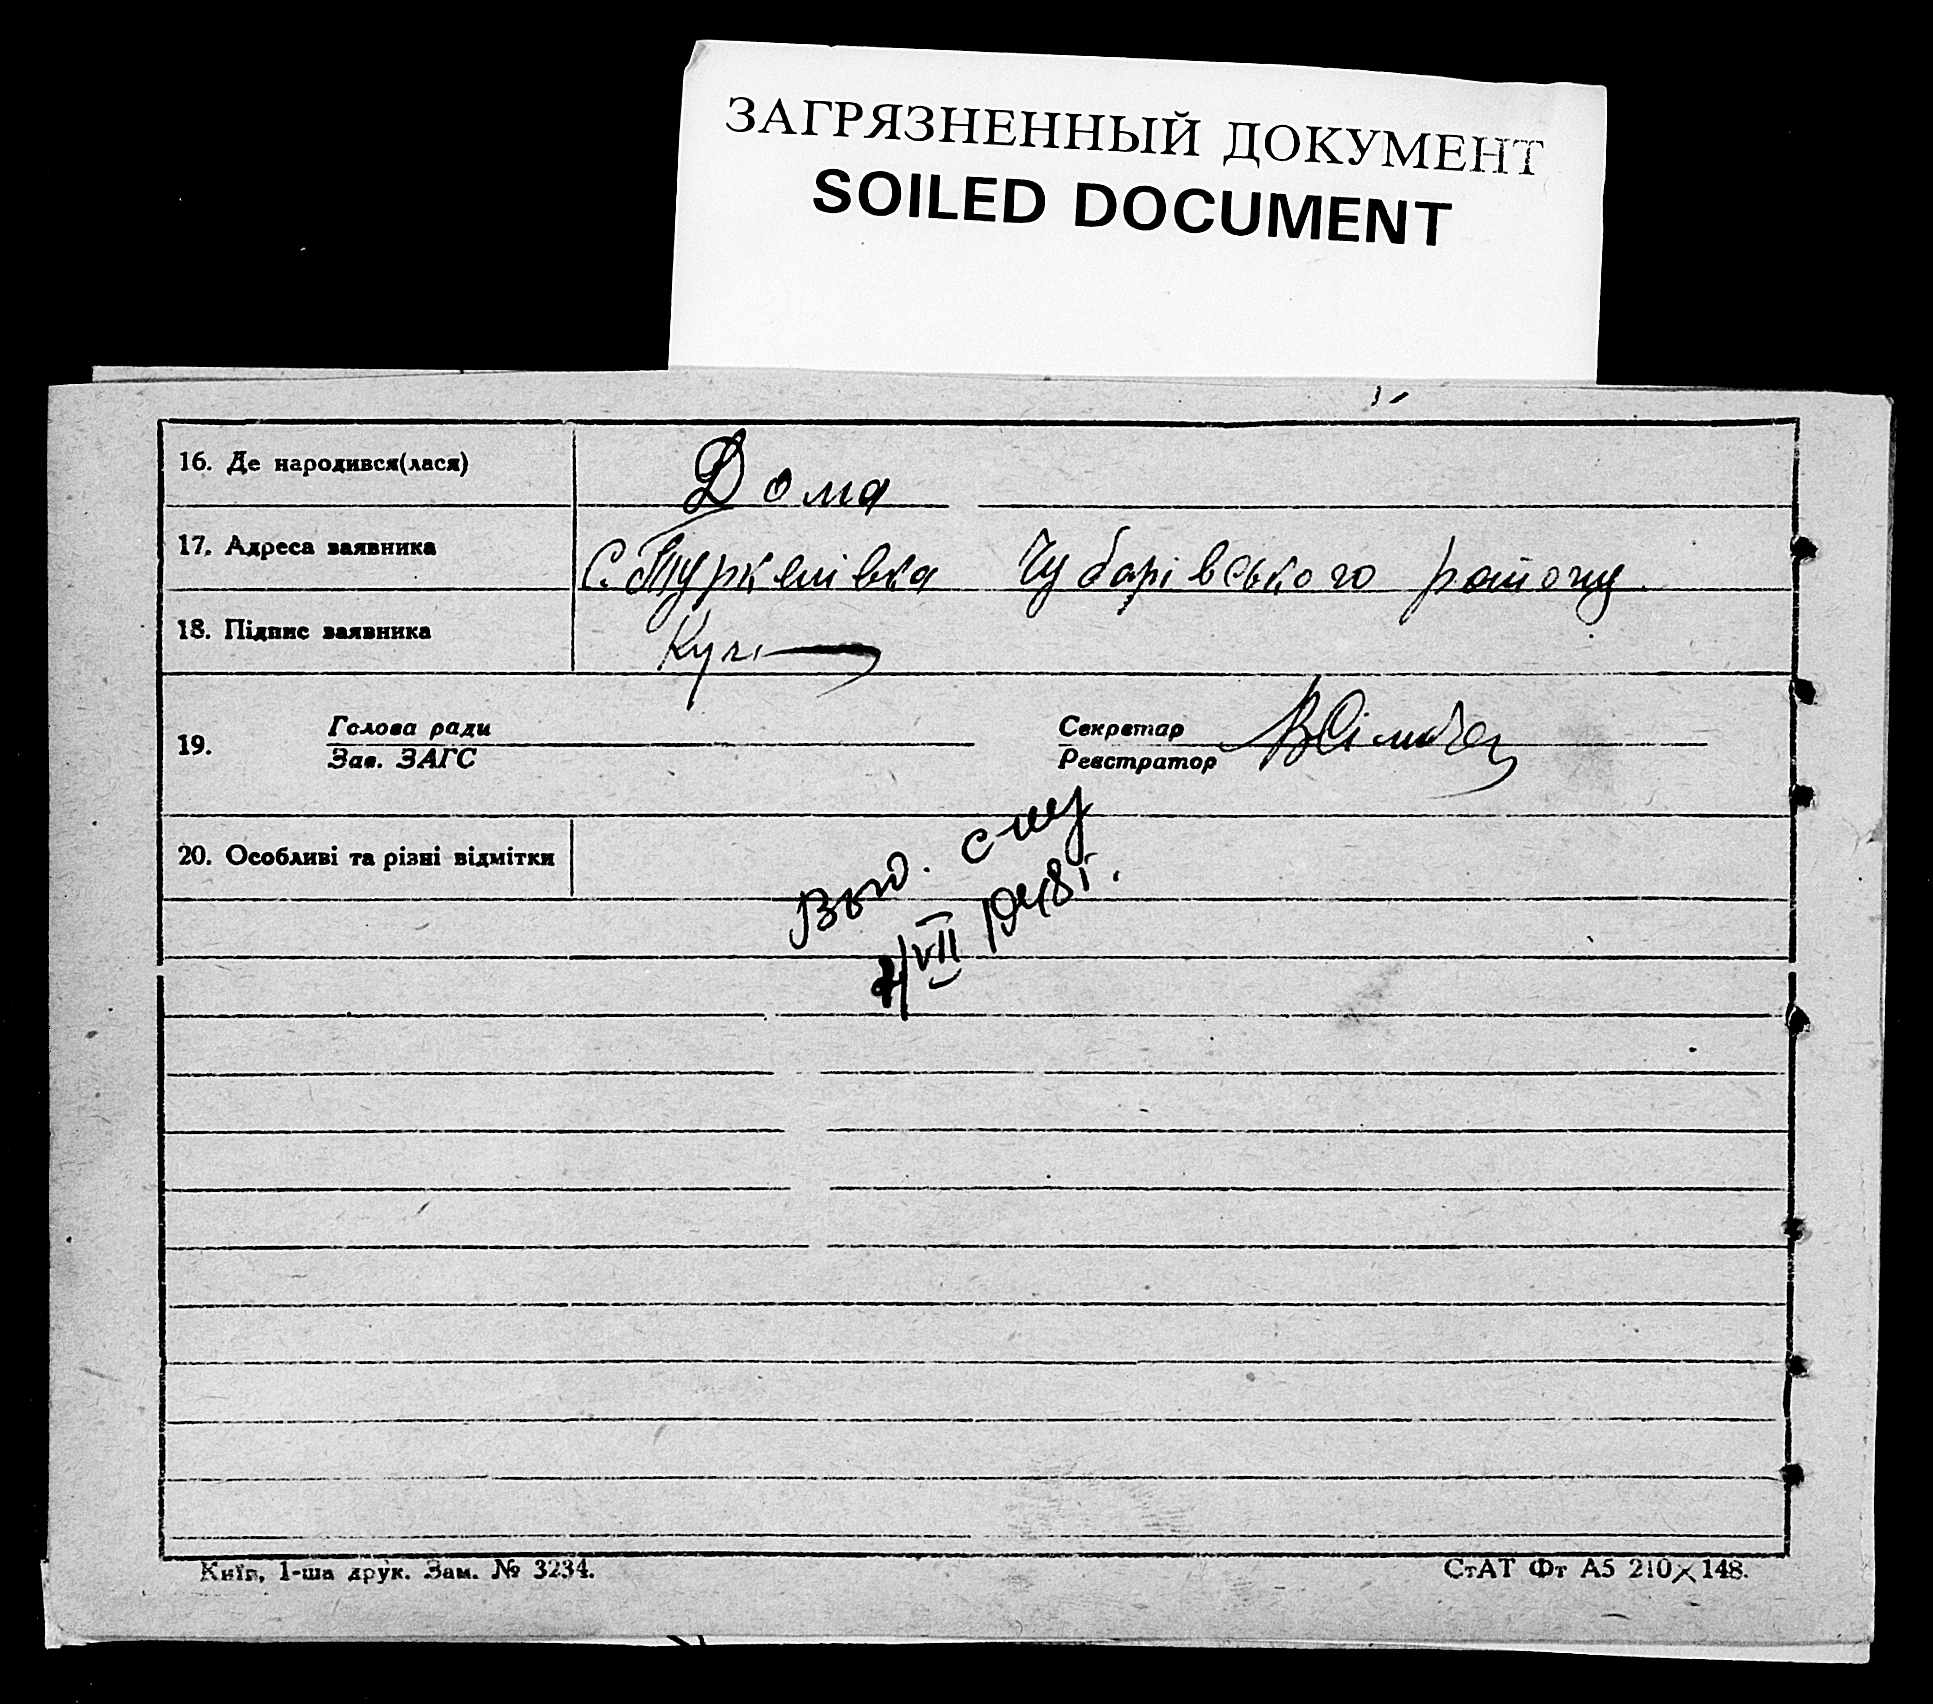 ЗАГРЯЗНЕННЫЙ ДОКУМЕНТ
SOILED DOCUMENT
16. Де народився(лася) Дома
17. Адреса заявника С. Туркенівка Чубарівського району
18. Підпис заявника
19. Голова ради
Зав. ЗАГС
Секретар
Реєстратор
20. Особливі та різні відмітки
VII 1948 г.
Київ, 1-ша друк. Зам. № 3234.
СтАТ Фт А5 210×148.